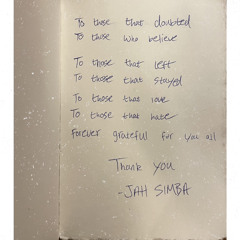 To those that doubted
To those who believe
To those that left
To those that stayed
To those that love
To those that hate
Forever grateful for you all
Thank you
-JAH SIMBA